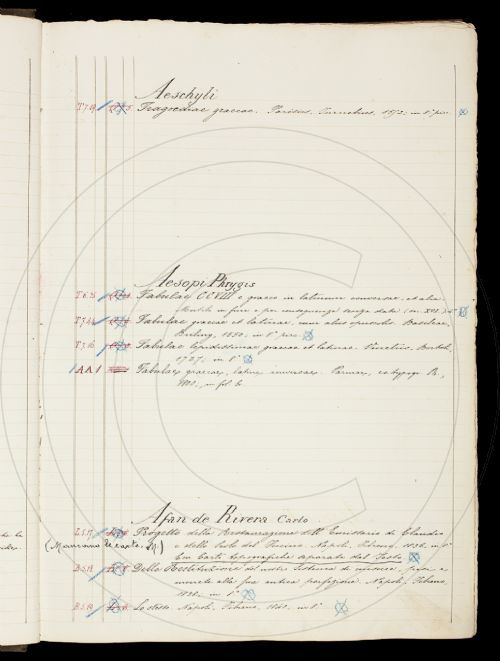 Aeschyli
Tragoediae graecae. Parisiis, Turnebus, 1552. in 8° pic.
Aesopi Phrygis
T.6.
Fabulae CCVIII e graeco in latinum conversae, et alia.
in fine e per conseguenza senza data (in XVI
T.7.
Fabulae graecae et latinae, cum aliis opusculis. Basileae,
1550. in 8° pic.
T.7.16
Fabulae lepidissimae graecae et latinae.
1727. in 8°
A.A.1
Fabulae graecae, latine conversae. Parmae, ex typogr. R.,
1800, in fol. b.
Afan de Rivera Carlo
L.I.17
Progetto della Restaurazione dell' Emissario di Claudio
(Mancano le carte. M.)
e dello Scolo del Fucino. Napoli, Fibreno, 1836. in 8°
Con Carte topografiche separate dal Testo
B.5.18
Della Restituzione del nostro Sistema di misure, pesi e
monete alla sua antica perfezione. Napoli, Fibreno,
1838. in 8°
B.5.19
Lo stesso. Napoli, Fibreno, 1840. in 8°